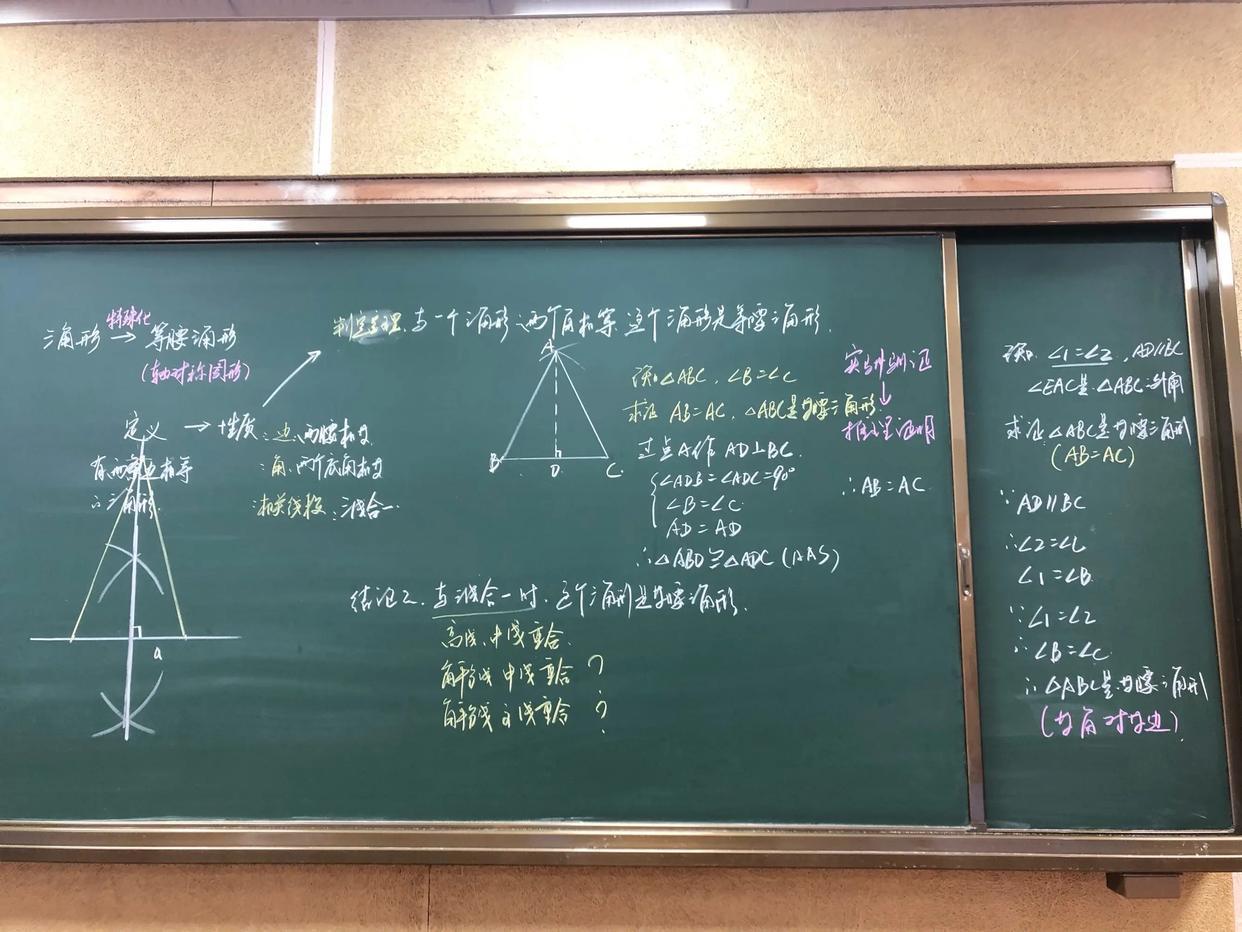 三角形 特殊化 → 等腰三角形
(轴对称图形)
定义 → 性质
有两条边相等
的三角形
：边：两腰相等
：角：两个底角相等
：相关线段：三线合一
判定定理：有一个三角形的两个角相等 这个三角形是等腰三角形.
A
B D C
已知△ABC, ∠B=∠C
求证 AB=AC, △ABC是等腰三角形.
过点A作 AD⊥BC.
∠ADB=∠ADC=90°
∠B=∠C
AD=AD
∴△ABD≌△ADC (AAS)
∴AB=AC
实验验证
↓
推理证明
结论2. 有三线合一时, 这个三角形是等腰三角形.
高线、中线重合.
角平分线 中线重合 ?
角平分线 高线重合 ?
a
已知: ∠1=∠2, AD∥BC
∠EAC是△ABC外角
求证 △ABC是等腰三角形
(AB=AC)
∵AD∥BC
∴∠2=∠C
∠1=∠B
∵∠1=∠2
∴∠B=∠C
∴△ABC是等腰三角形
(等角对等边).